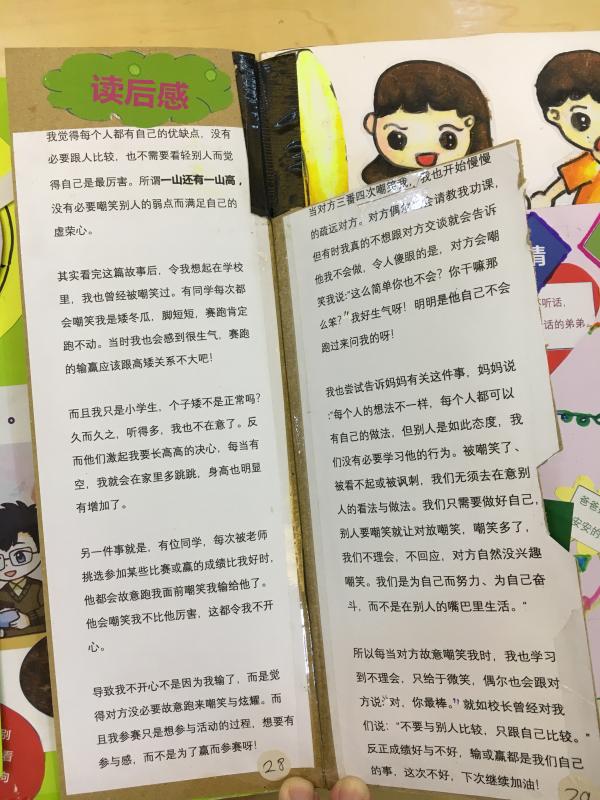 读后感
我觉得每个人都有自己的优缺点，没有
必要跟人比较，也不需要看轻别人而觉
得自己是最厉害。所谓一山还有一山高，
没有必要嘲笑别人的弱点而满足自己的
虚荣心。
其实看完这篇故事后，令我想起在学校
里，我也曾经被嘲笑过。有同学每次都
会嘲笑我是矮冬瓜，脚短短，赛跑肯定
跑不动。当时我也会感到很生气，赛跑
的输赢应该跟高矮关系不大吧！
而且我只是小学生，个子矮不是正常吗？
久而久之，听得多，我也不在意了。反
而他们激起我要长高高的决心，每当有
空，我就会在家里多跳跳，身高也明显
有增加了。
另一件事就是，有位同学，每次被老师
挑选参加某些比赛或赢的成绩比我好时，
他都会故意跑我面前嘲笑我输给他了。
他会嘲笑我不比他厉害，这都令我不开
心。
导致我不开心不是因为我输了，而是觉
得对方没必要故意跑来嘲笑与炫耀。而
且我参赛只是想参与活动的过程，想要有
参与感，而不是为了赢而参赛呀！
28
当对方三番四次嘲笑我，我也开始慢慢
的疏远对方。对方偶尔会请教我功课，
但有时我真的不想跟对方交谈就会告诉
他我不会做，令人傻眼的是，对方会嘲
笑我说:“这么简单你也不会？你干嘛那
么笨？”我好生气呀！明明是他自己不会
跑过来问我的呀！
我也尝试告诉妈妈有关这件事，妈妈说
:“每个人的想法不一样，每个人都可以
有自己的做法，但别人是如此态度，我
们没有必要学习他的行为。被嘲笑了、
被看不起或被讽刺，我们无须去在意别
人的看法与做法。我们只需要做好自己，
别人要嘲笑就让对放嘲笑，嘲笑多了，
我们不理会，不回应，对方自然没兴趣
嘲笑。我们是为自己而努力、为自己奋
斗，而不是在别人的嘴巴里生活。”
所以每当对方故意嘲笑我时，我也学习
到不理会，只给于微笑，偶尔也会跟对
方说:“对，你最棒。”就如校长曾经对我
们说：“不要与别人比较，只跟自己比较。”
反正成绩好与不好，输或赢都是我们自己
的事，这次不好，下次继续加油！
29
情
不听话，
话的弟弟。
爸爸
安安的
别
看
向